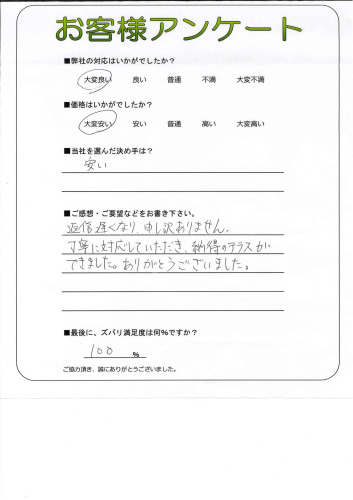 お客様アンケート
■弊社の対応はいかがでしたか?
大変良い 良い 普通 不満 大変不満
■価格はいかがでしたか?
大変安い 安い 普通 高い 大変高い
■当社を選んだ決め手は?
安い
■ご感想・ご要望などをお書き下さい。
返信遅くなり、申し訳ありません。
丁寧に対応していただき、納得のテラスが
できました。ありがとうございました。
■最後に、ズバリ満足度は何%ですか?
100 %
ご協力頂き、誠にありがとうございました。